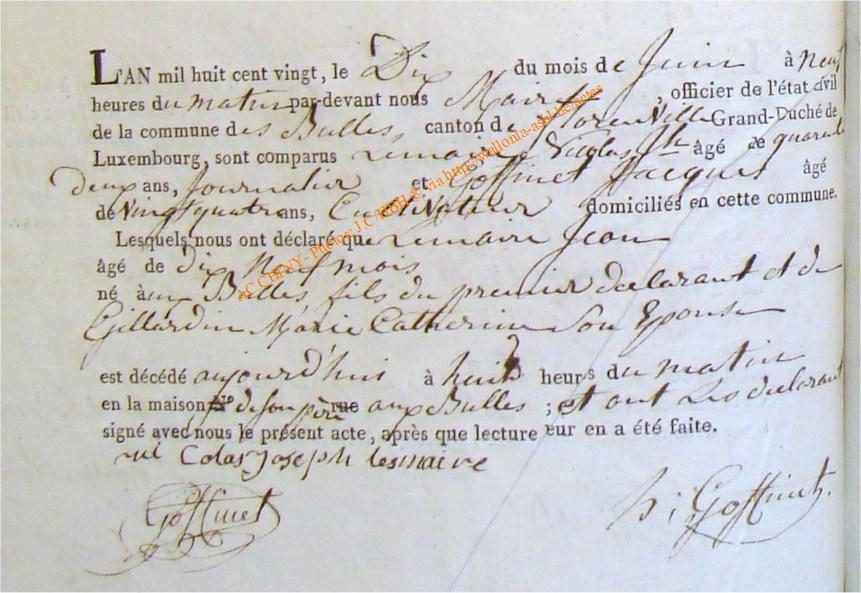 L'AN mil huit cent vingt, le Dix du mois de Juin à neuf
heures du matin par-devant nous Maire, officier de l'état civil
de la commune des Bulles, canton de florenVille Grand-Duché de
Luxembourg, sont comparus Lemaire Nicolas Jh âgé de quarante
deux ans, Journalier et Goffinet Jacques âgé
de Vingt quatre ans, Cultivateur domiciliés en cette commune.
Lesquels nous ont déclaré que Lemaire Jean
âgé de dix Neuf mois
né aux Bulles fils du premier declarant et de
Gillardin Marie Catherine Son Epouse
est décédé aujourd'huis à huit heurs du matin
en la maison N.º de son père rue aux Bulles ; et ont Les declarant
signé avec nous le présent acte, après que lecture eur en a été faite.
Colas Joseph lemaire
Goffinet
Goffinet
ACCHIGNY - Photos J.C. via http://wallonia-asbl.be/actes